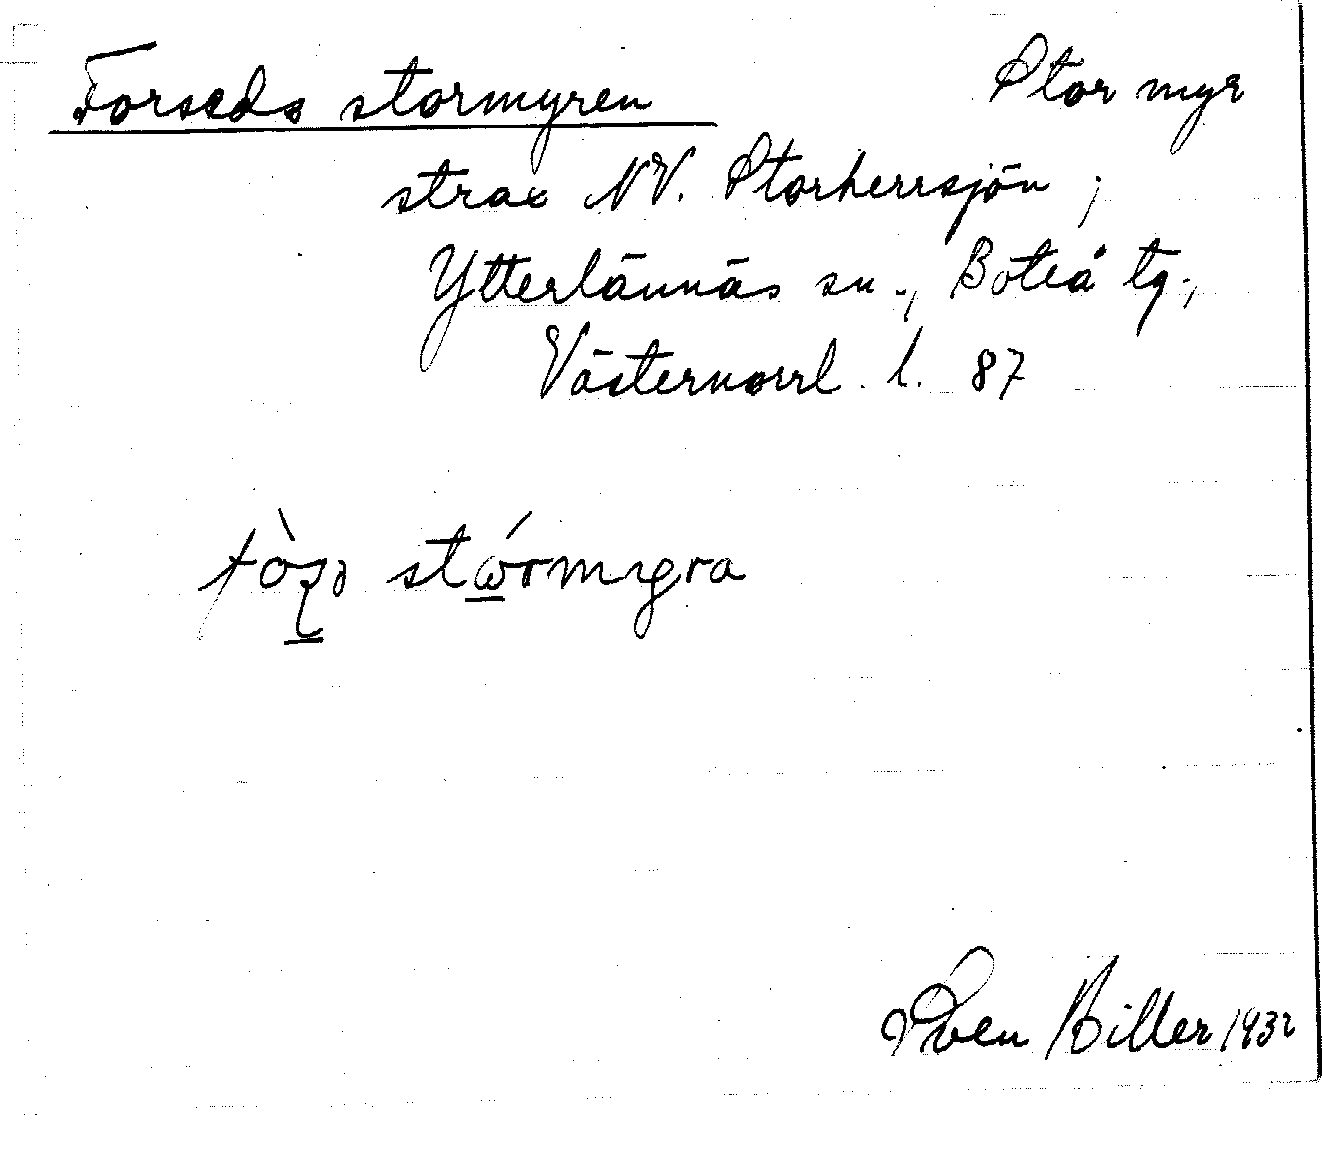 Forseds stormyren Stor myr
strax NV. Storherrsjön,
Ytterlännäs sn., Boteå tg.,
Västernorrl. l. 87
stórmyra
Sven Biller 1932